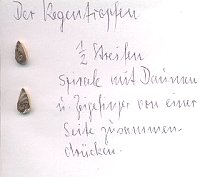 Der Regentropfen
1/2 Streifen
Spirale mit Daumen
u. Zeigefinger von einer
Seite zusammen-
drücken.